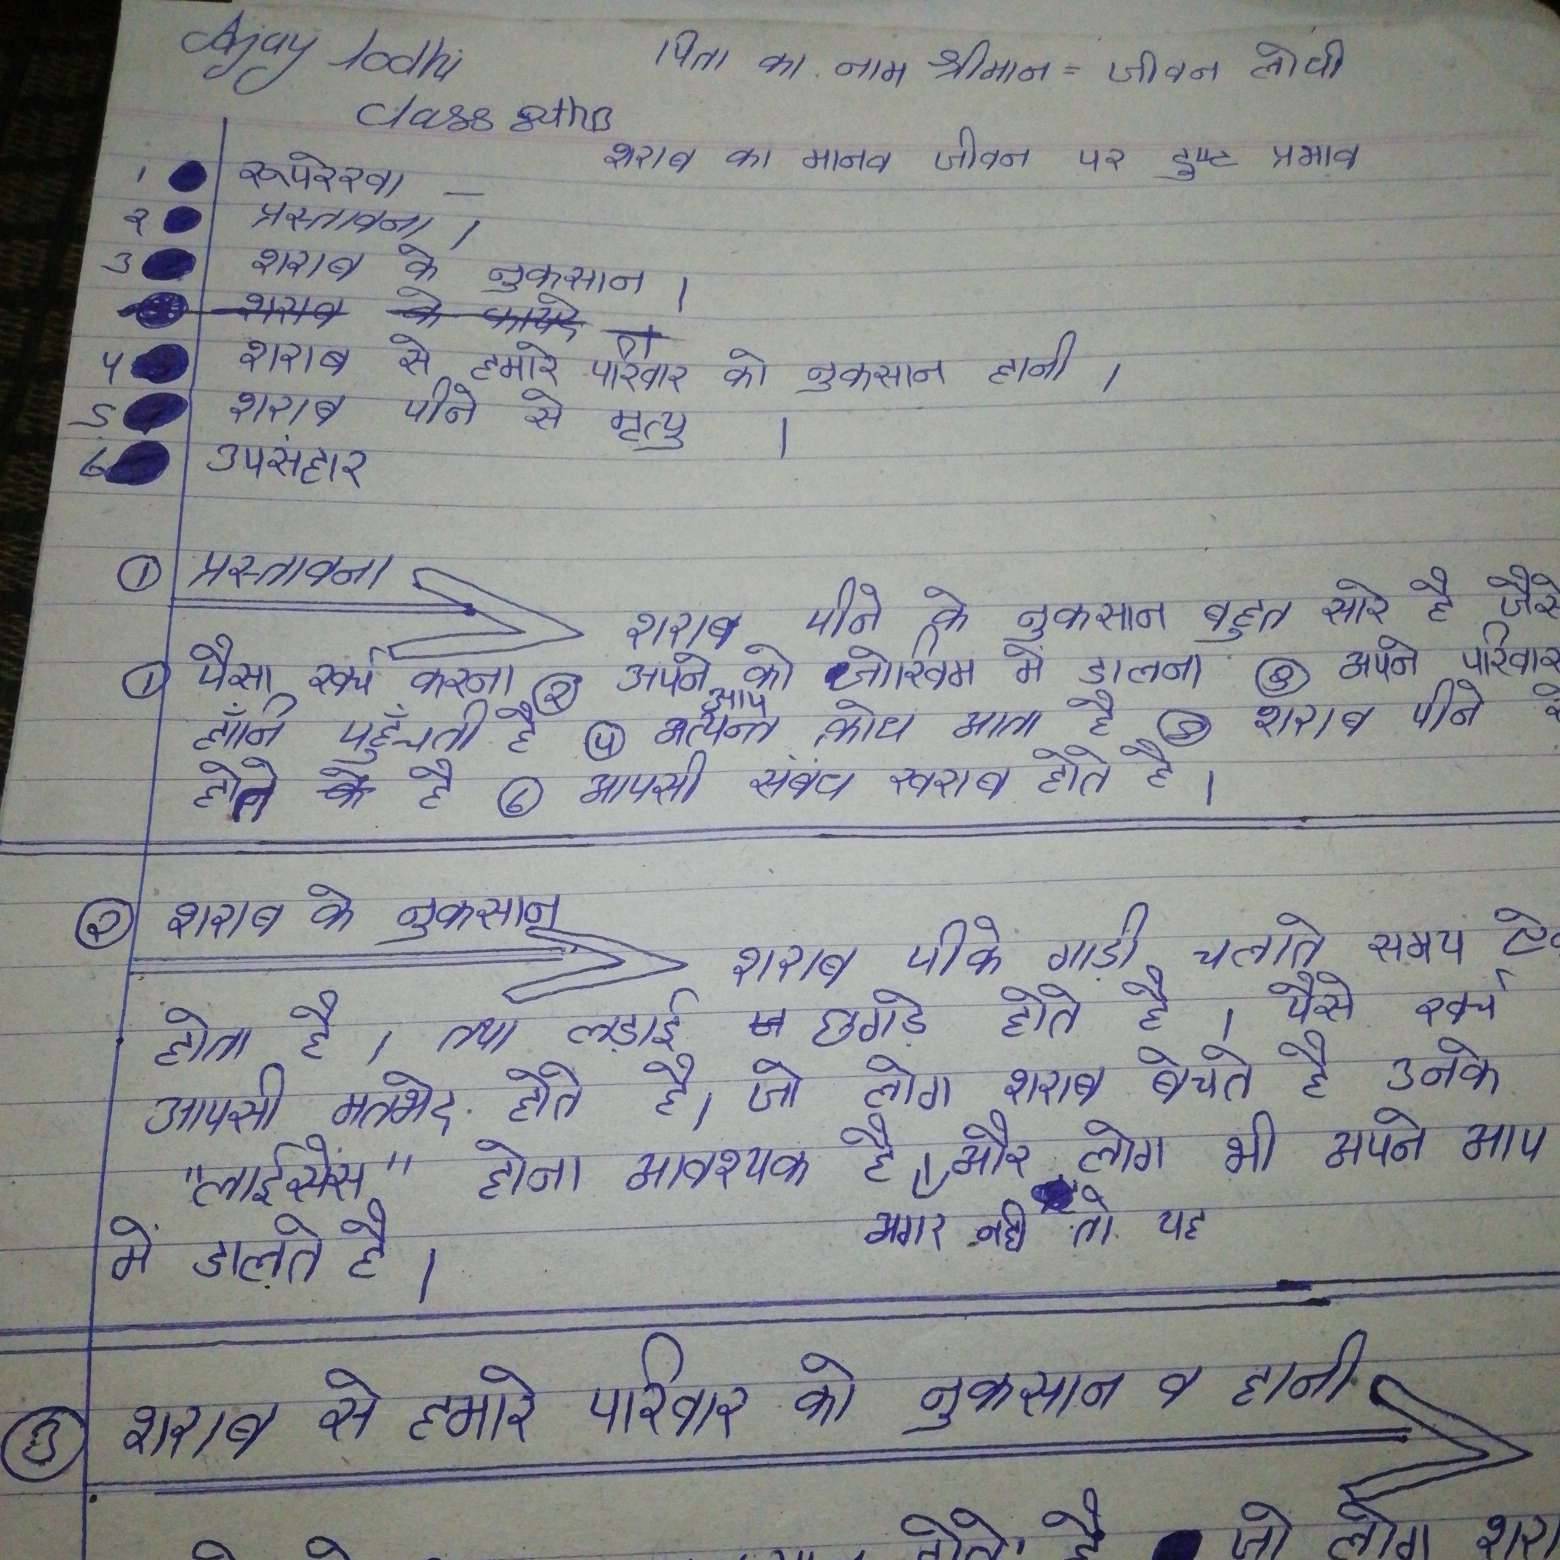 Ajay lodhi
पिता का नाम श्रीमान = जीवन लोधी
class 8th B
शराब का मानव जीवन पर दुष्ट प्रभाव
1 रूपरेखा —
२ प्रस्तावना ।
3 शराब के नुकसान ।
शराब के फायदे
4 शराब से हमारे परिवार को नुकसान हानी ।
5 शराब पीने से मृत्यु ।
6 उपसंहार
① प्रस्तावना
शराब पीने के नुकसान बहुत सारे है जैसे
① पैसा खर्च करना ② अपने को जोखिम में डालना ③ अपने परिवार
आप
हाँनि पहुँचती है ④ अत्यन्त क्रोध आता है ⑤ शराब पीने से
होते है ⑥ आपसी संबंध खराब होते है ।
② शराब के नुकसान
शराब पीके गाड़ी चलाते समय
होता है । तथा लड़ाई छगडे होते है । पैसे खर्च
आपसी मतभेद होते है । जो लोग शराब बेचते है उनके
"लाईसेंस" होना आवश्यक है । और लोग भी अपने आप
अगर नही तो यह
में डालते है ।
③ शराब से हमारे परिवार को नुकसान व हानी
होते है जो लोग